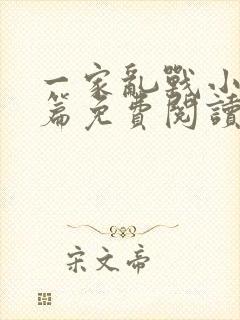 一家亂戰小
篇免費閱讀
宋文帝